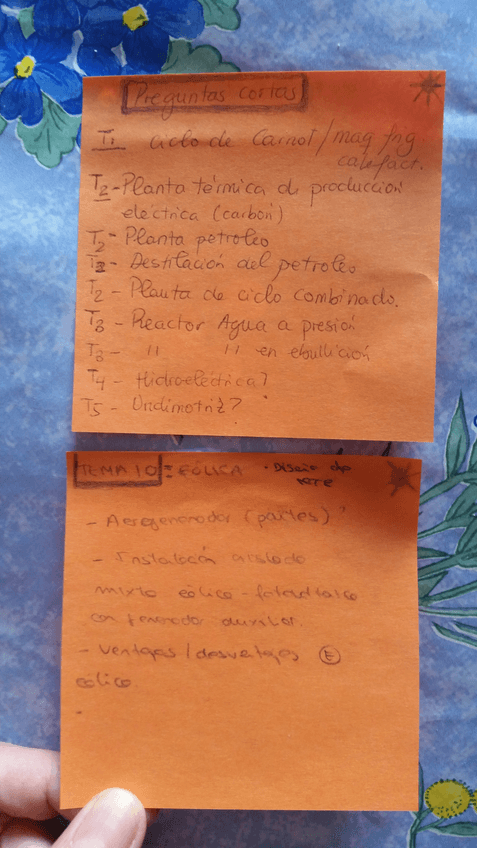 Preguntas cortas
T1 Ciclo de Carnot / maq frig.
calefact.
T2 - Planta térmica de producción
eléctrica (carbón)
T2 - Planta petroleo
T2 - Destilación del petroleo
T2 - Planta de ciclo combinado.
T3 - Reactor Agua a presión
T3 - 11 11 en ebullición
T4 - Hidroeléctrica?
T5 - Undimotriz?
TEMA 10 = EÓLICA · Diseño de
torre
- Aerogenerador (partes)?
- Instalación aislada
mixta eólico - fotovoltaico
con generador auxiliar.
- ventajas / desventajas Ⓔ
eólica.